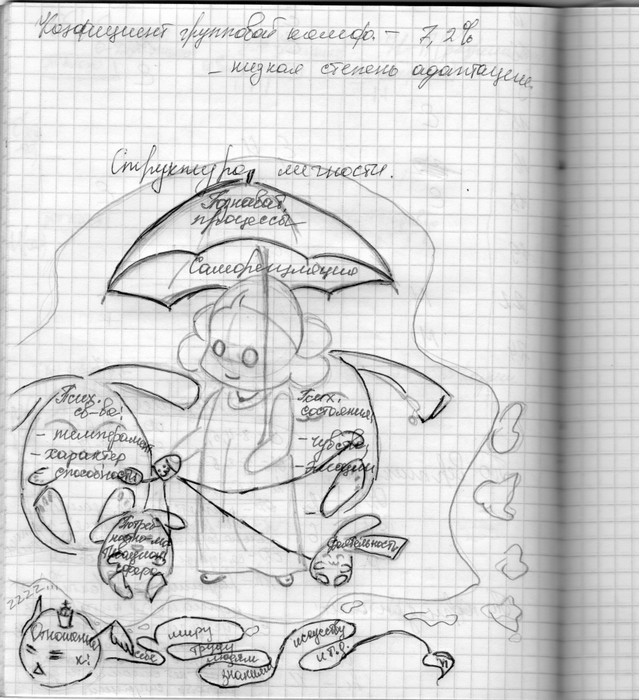 Коэфициент групповой комфор. – 7,2%
– низкая степень адаптации.
Структура личности.
Познават.
процессы
Саморегуляция
Псих.
св-ва:
- темперамент
- характер
- способности
Псих.
состояния:
- чувства
- эмоции
Потреб-
ностно-мо
тивацион.
сфера
Деятельность
zzzz...
Отношения
к:
себе
миру
труду
людям
знаниям
искусству
и т.д.